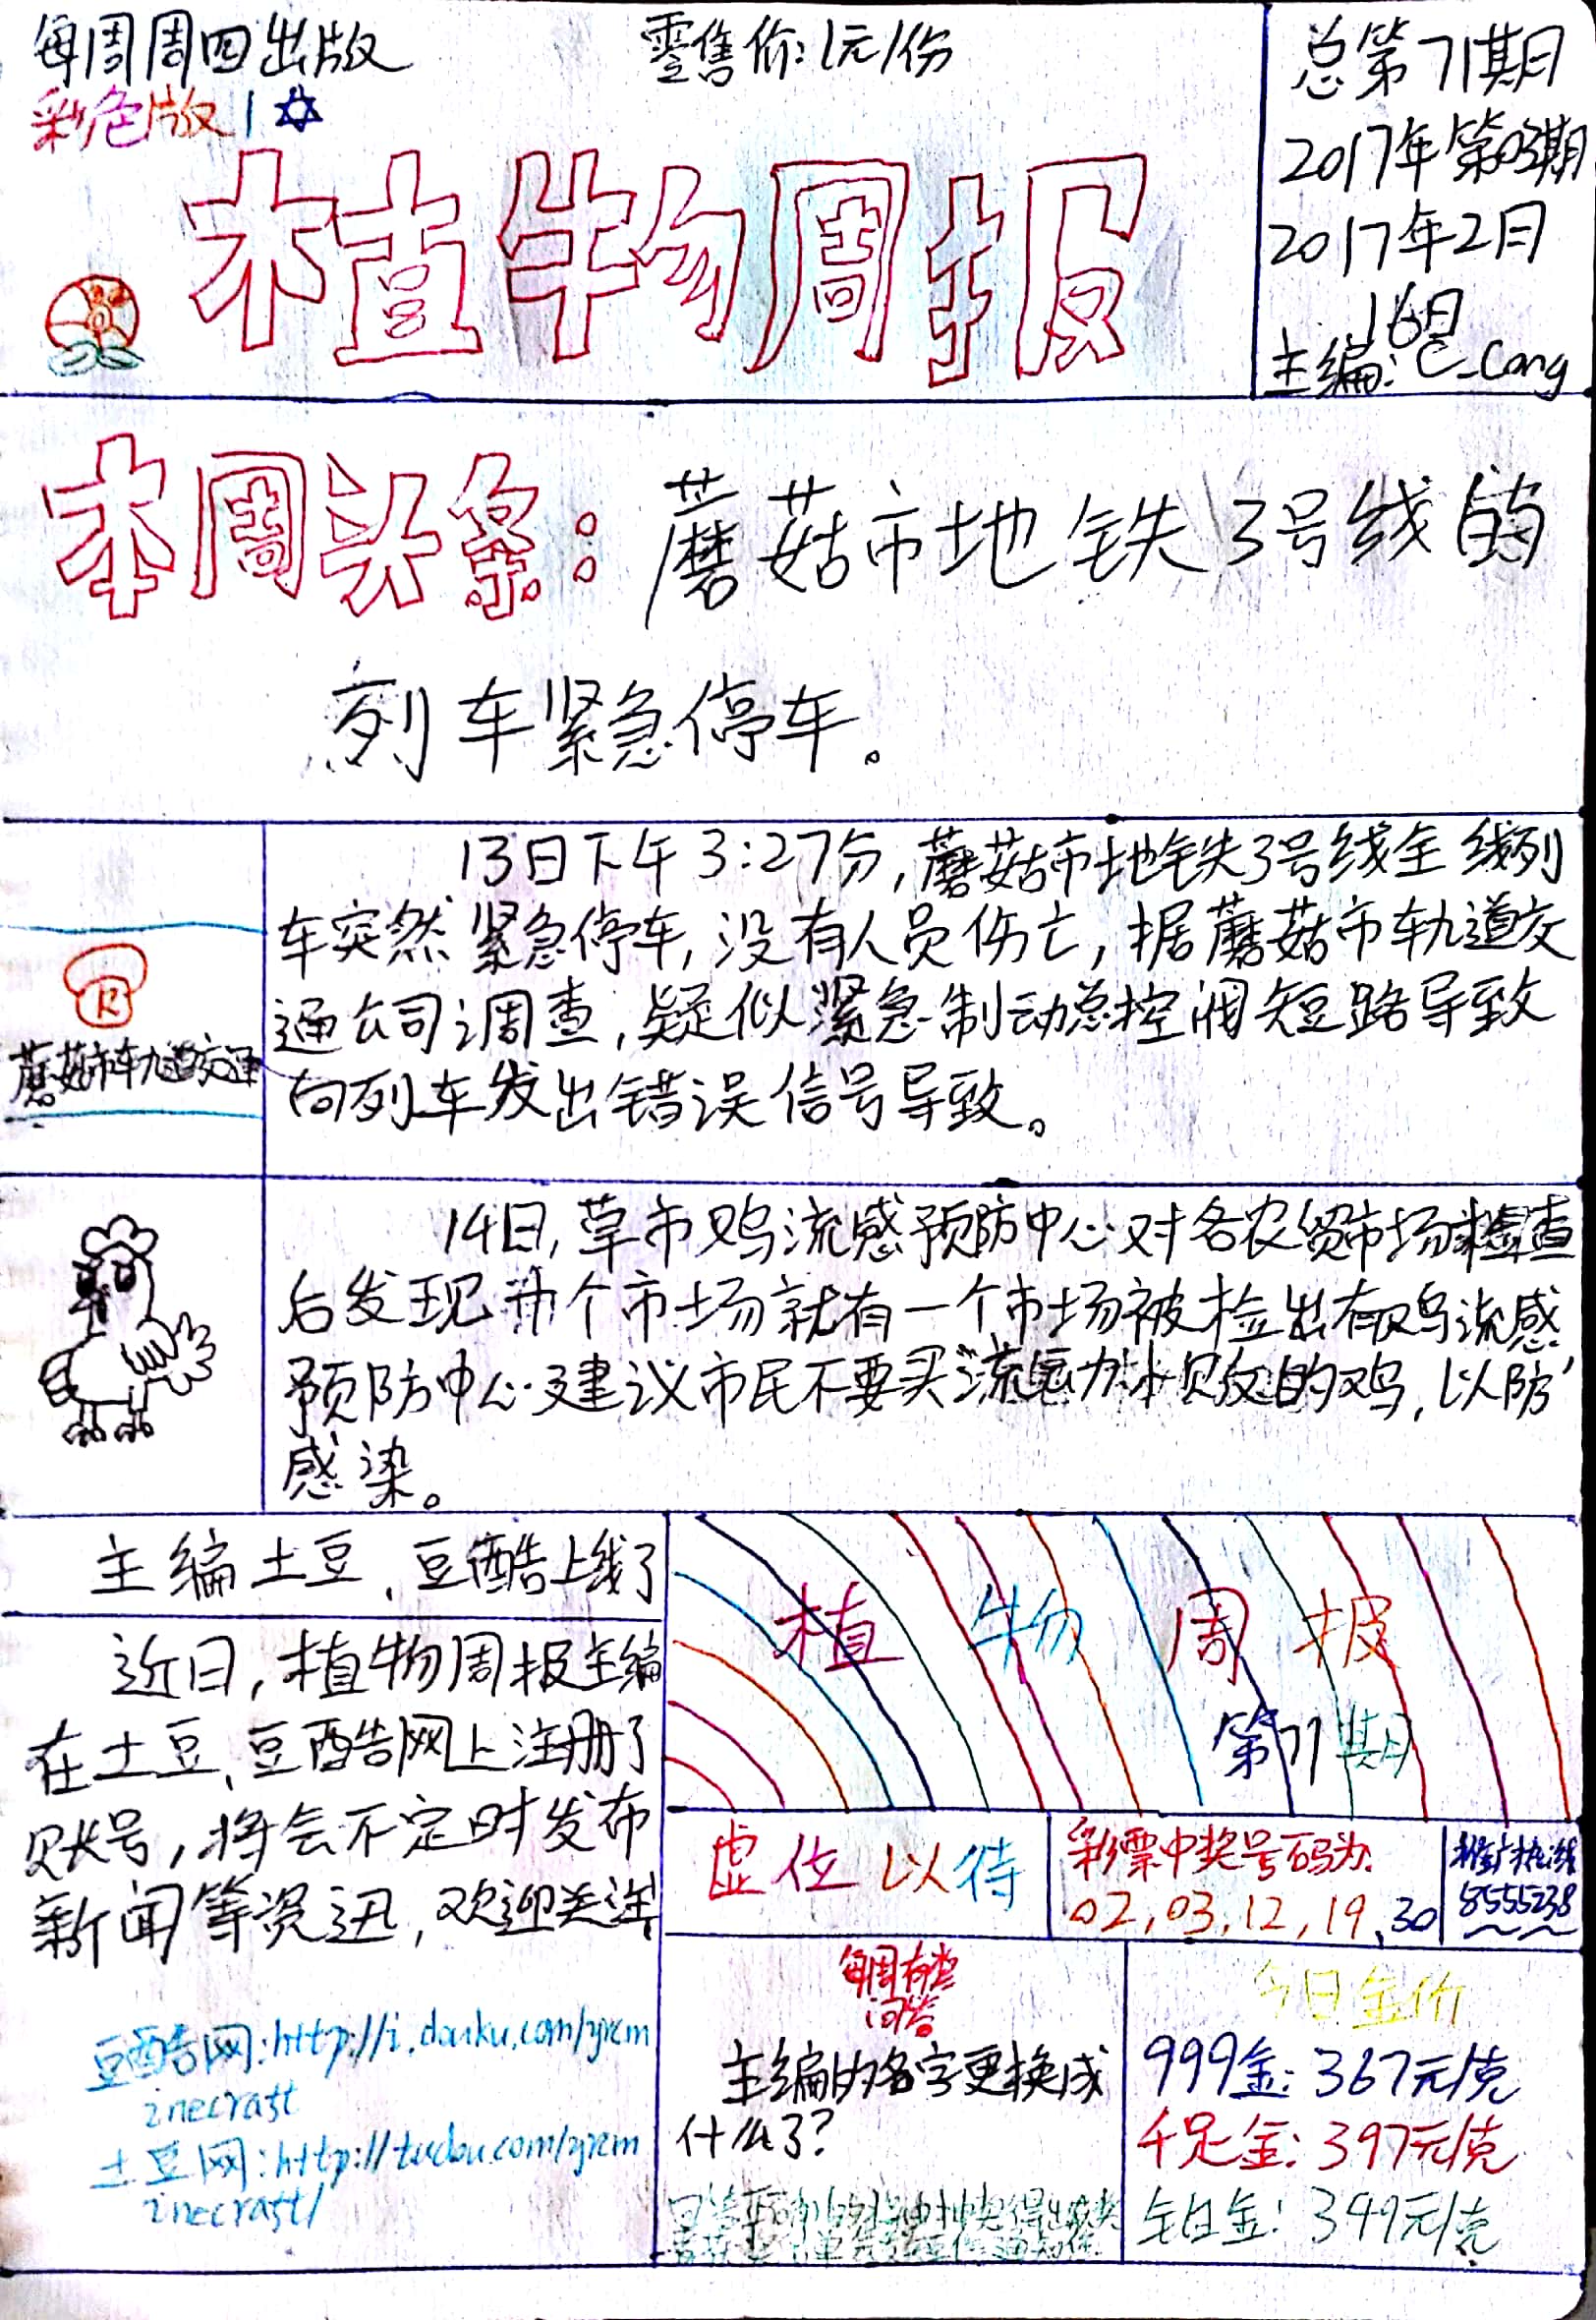 每周周四出版
零售价:1元/份
彩色版 1
植物周报
总第71期
2017年第03期
2017年2月
16日
主编:C_Cong
本周头条:蘑菇市地铁3号线的
列车紧急停车。
13日下午3:27分,蘑菇市地铁3号线全线列
车突然紧急停车,没有人员伤亡,据蘑菇市轨道交
通公司调查,疑似紧急制动总控阀短路导致
向列车发出错误信号导致。
R
蘑菇市轨道交通
14日,草市鸡流感预防中心对各农贸市场检查
后发现 个市场就有一个市场被检出有鸡流感
预防中心建议市民不要买流动小贩的鸡,以防
感染。
主编土豆、豆酷上线了
近日,植物周报主编
在土豆、豆酷网上注册了
账号,将会不定时发布
新闻等资迅,欢迎关注
豆酷网:http://i.douku.com/yjxcm
inecraft
土豆网:http://tudou.com/yjxcm
inecraft/
植物周报
第71期
虚位以待
彩票中奖号码为:
02,03,12,19,30
热线
8555238
每周有奖
问答
主编的名字更换成
什么了?
今日金价
999金:367元/克
千足金:397元/克
铂金:349元/克